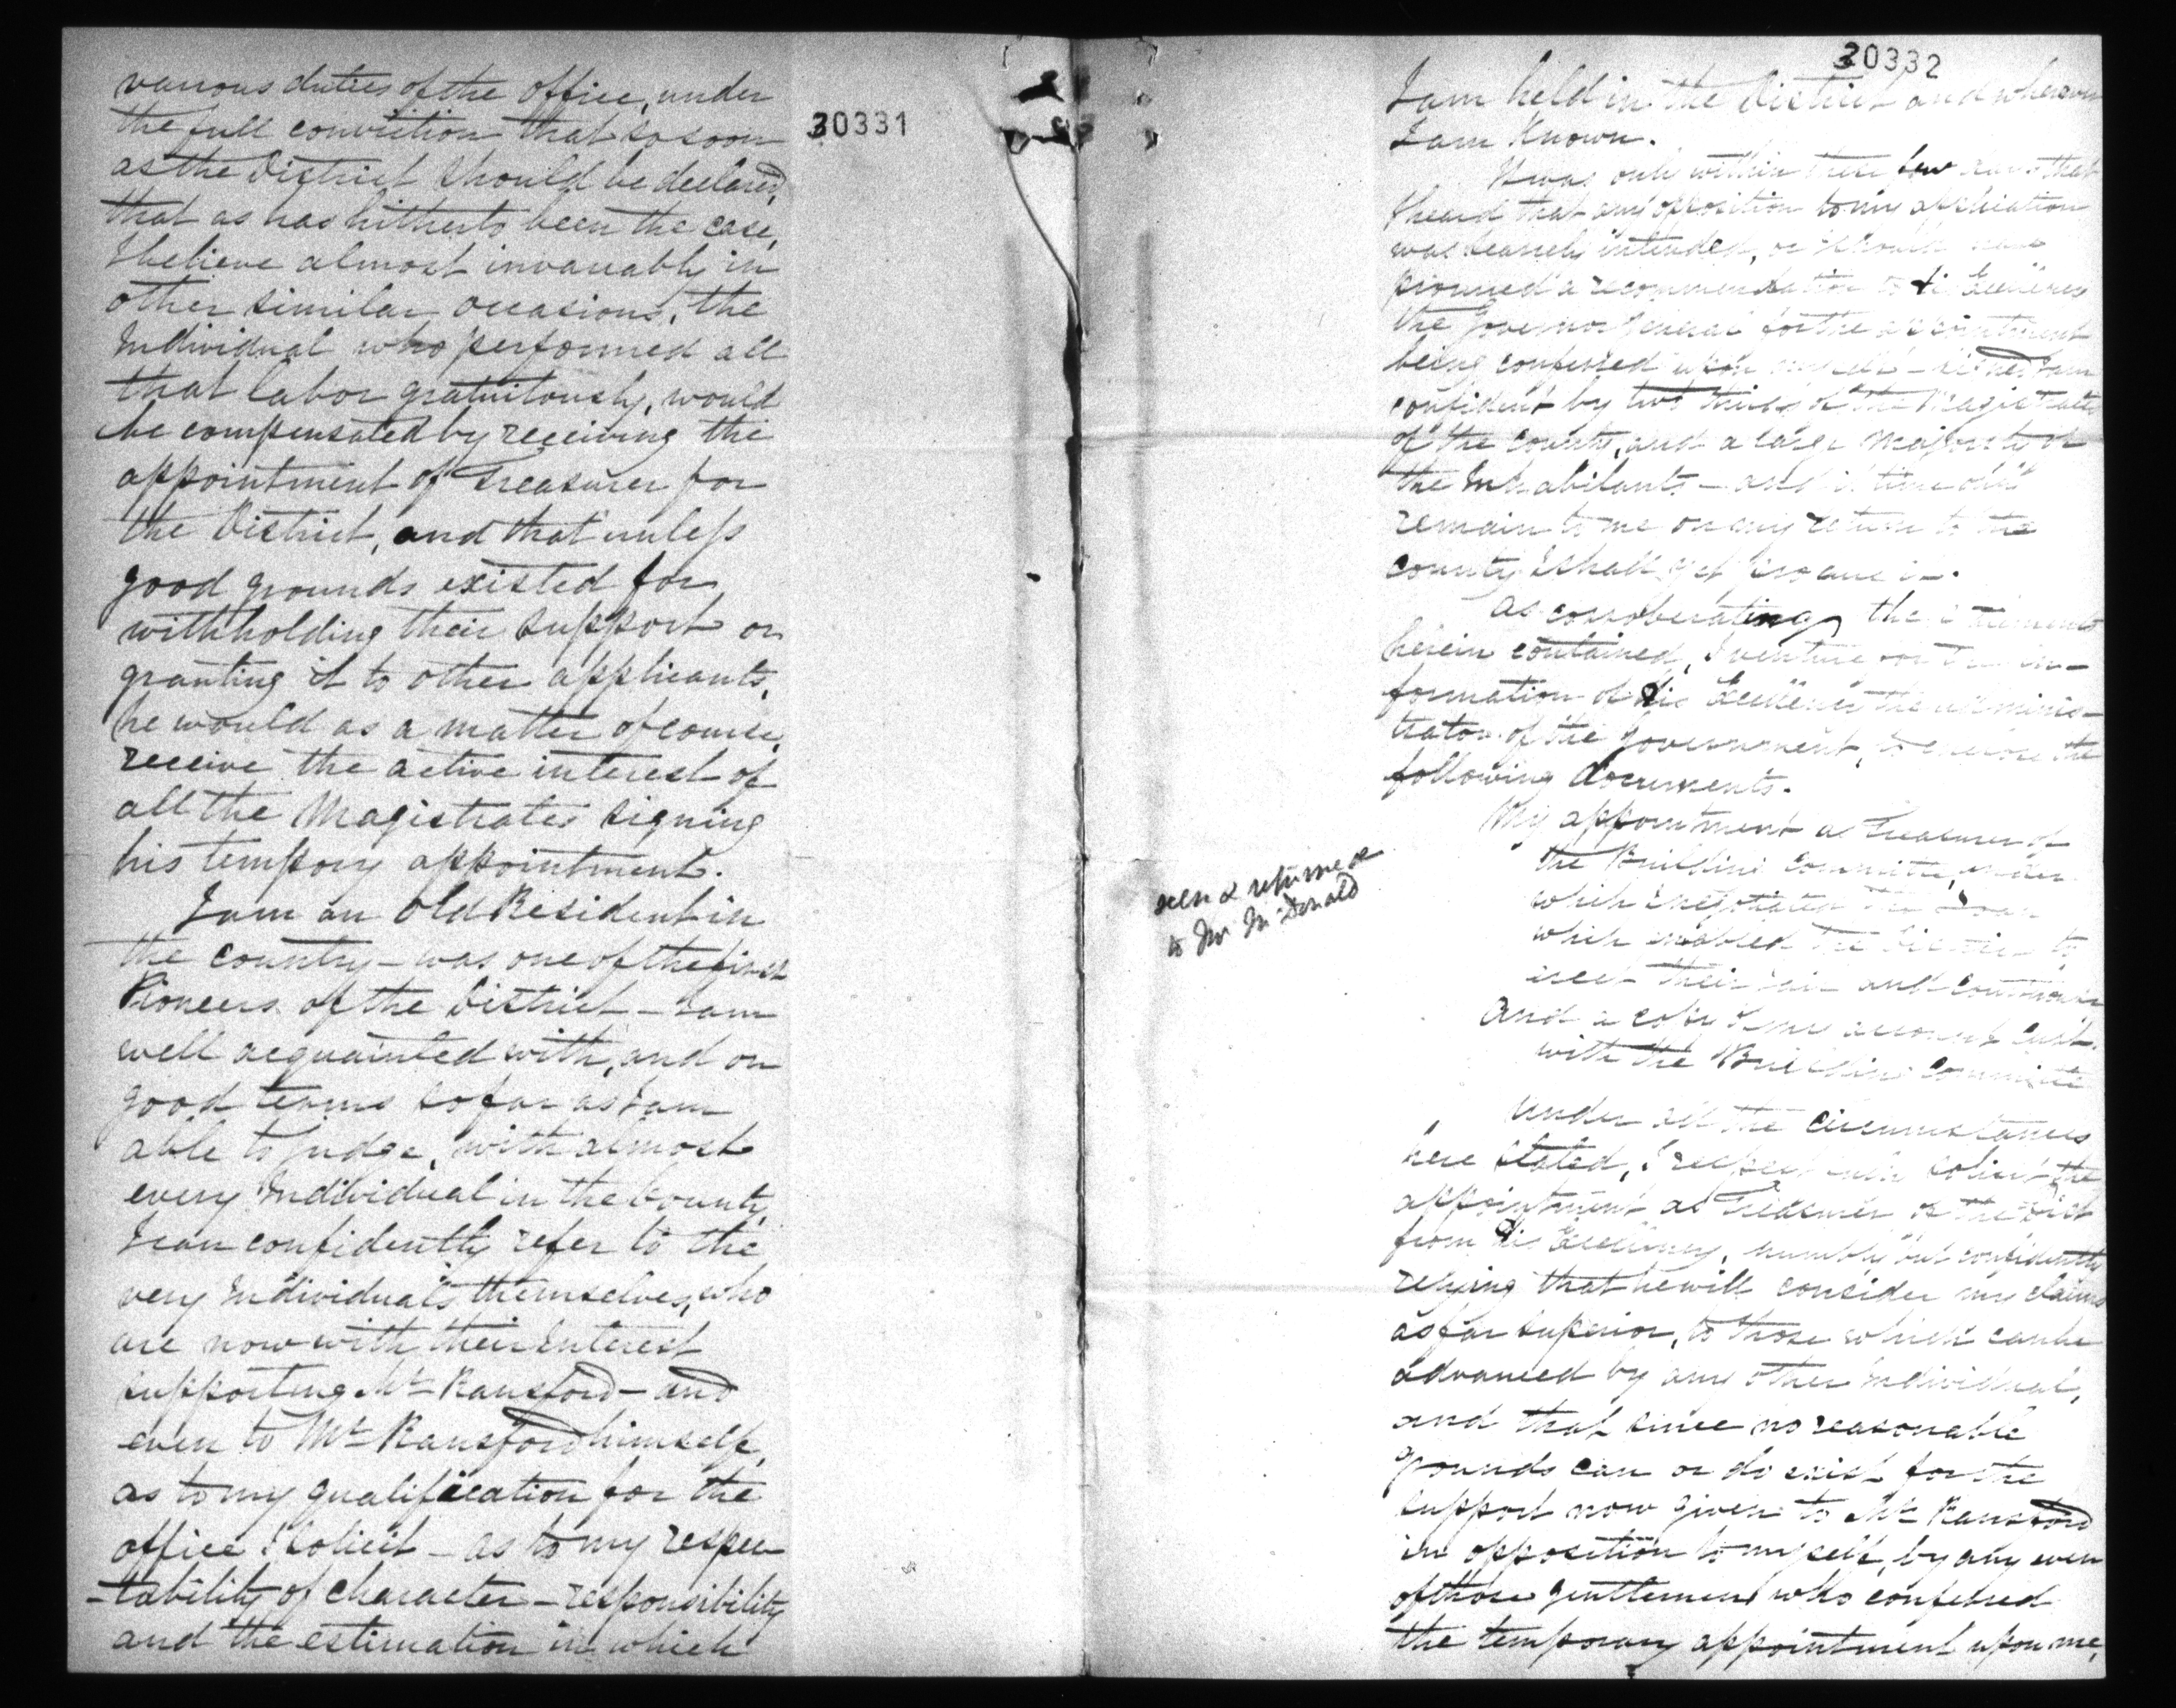 various duties of the office, under
the full conviction that so soon
as the District should be declared,
that as has hitherto been the case,
I believe almost invariably in
other similar occasions, the
Individual who performed all
that labor gratuitously, would
be compensated by receiving the
appointment of Treasurer for
the District, and that unless
good grounds existed for
withholding their support or
granting it to other applicants,
he would as a matter of course,
receive the active interest of
all the Magistrates signing
his tempory appointment.
I am an Old Resident in
the country – was one of the first
Pioneers of the District – I am
well acquainted with, and on
good terms so far as I am
able to judge, with almost
every Individual in the County,
I can confidently refer to the
very Individuals themselves, who
are now with their Interest
supporting Mr Ransford – and
even to Mr Ransford himself,
as to my qualification for the
office I solicit – as to my respec
-tability of character – responsibility
and the estimation in which
30331
seen & returned
to Mr McDonald
30332
I am held in the District and wherever
I am Known.
It was only within these few days that
I heard that any opposition to my application
was intended, or I should have
procured a recommendation to His Excellency
the Governor General for the appointment
being conferred upon myself – signed I am
confident by two thirds of the Magistrates
of the County, and a large Majority of
the Inhabitants – and if time still
remain to me on my return to the
county I shall yet procure it.
As corroberating the statements
herein contained, I venture for the in-
formation of His Excellency the adminis-
trator of the Government, to enclose the
following documents.
My appointment as Treasurer of
the Building Committee, under
which I negotiated the Loan
which enabled the District to
erect their Jail and Courthouse
And a copy of my account Curt.
with the Building Committee
Under all the circumstances
here stated, I respectfully solicit the
appointment as Treasurer of the Dist
from His Excellency, humbly but confidently
relying that he will consider my claims
as far superior, to those which can be
advanced by any other Individual,
and that since no reasonable
grounds can or do exist for the
support now given to Mr Ransford
in opposition to myself, by any even
of those gentlemen who conferred
the temporary appointment upon me,